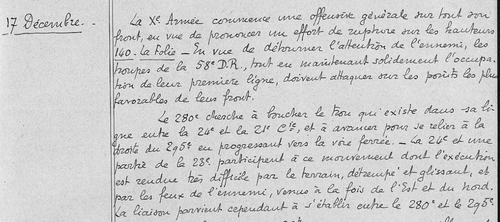 17 Décembre.
La Xe Armée commence une offensive générale sur tout son
front, en vue de prononcer un effort de rupture sur les hauteurs
140. La Folie - En vue de détourner l'attention de l'ennemi, les
troupes de la 58e D.R., tout en maintenant solidement l'occupa
tion de leur première ligne, doivent attaquer sur les points les plus
favorables de leur front.
Le 280e cherche à boucher le trou qui existe dans sa li
gne entre la 24e et la 21e Cie, et à avancer pour se relier à la
droite du 295e en progressant vers la voie ferrée. - La 24e et une
partie de la 23e participent à ce mouvement dont l'exécution
est rendue très difficile par le terrain, détrempé et glissant, et
par les feux de l'ennemi, venus à la fois de l'Est et du Nord.
La liaison parvient cependant à s'établir entre le 280e et le 295e